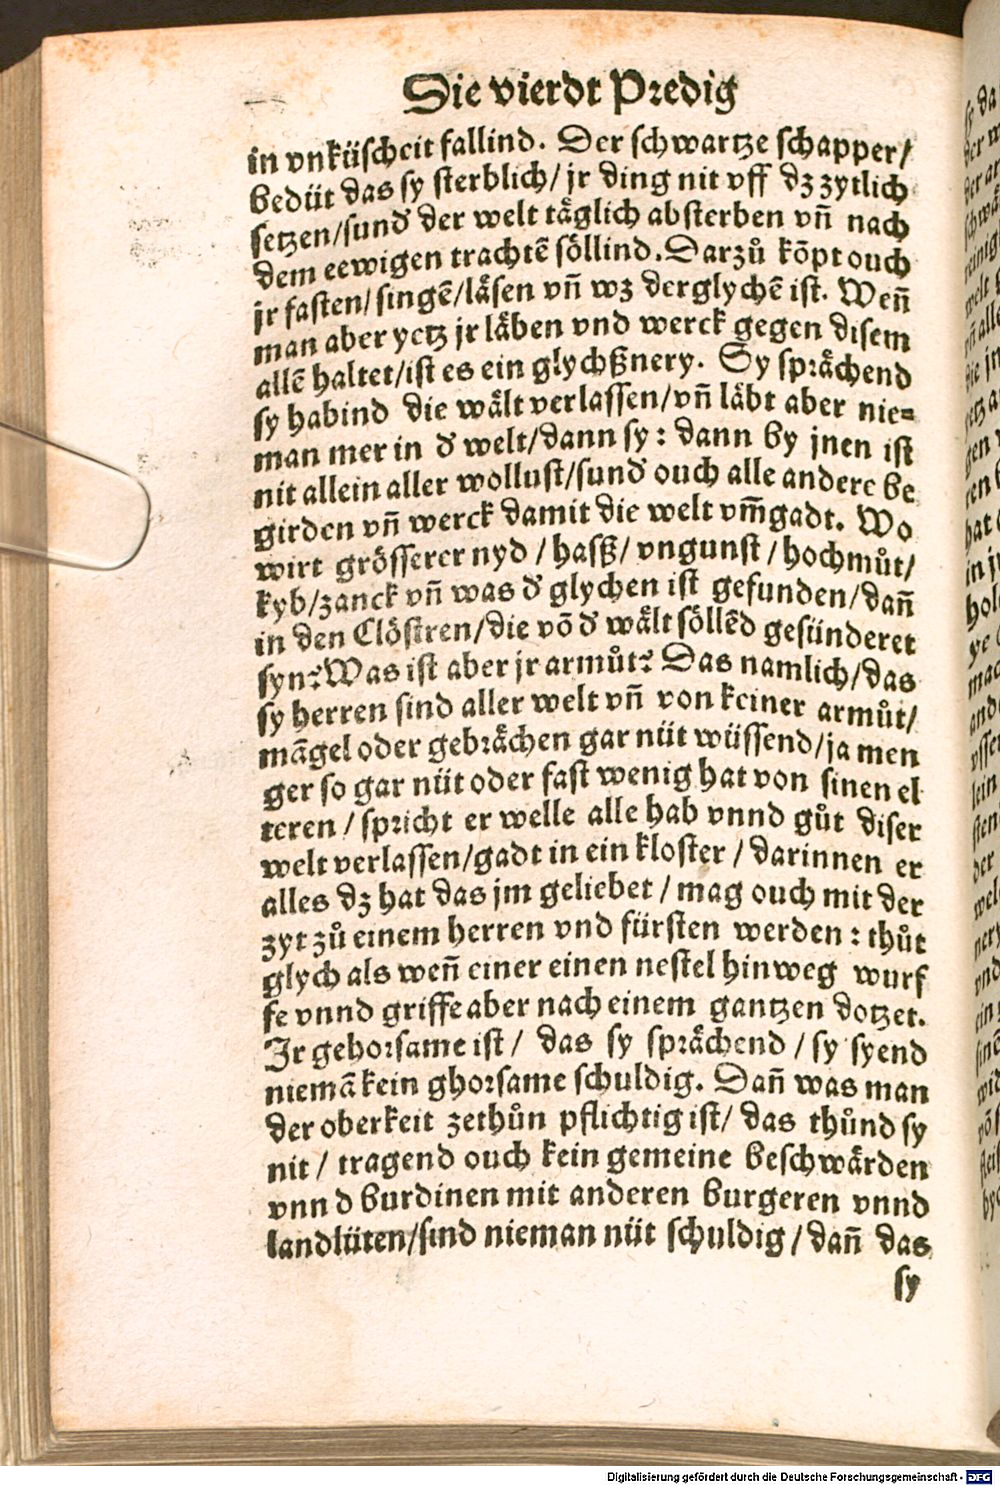 Die vierdt Predig
in vnküscheit fallind. Der schwartze schapper/
bedüt das sy sterblich/ jr ding nit vff dz zytlich
setzen/sunđ der welt täglich absterben vñ nach
dem eewigen trachtẽ söllind. Darzů kõpt ouch
jr fasten/ singẽ/läsen vñ wz derglychẽ ist. Weñ
man aber yetz jr läben vnd werck gegen disem
allẽ haltet/ist es ein glychßnery. Sy sprächend
sy habind die wält verlassen/vñ läbt aber nie=
man mer in đ welt/dann sy: dann by jnen ist
nit allein aller wollust/sunđ ouch alle andere be
girden vñ werck damit die welt vm̃gadt. Wo
wirt grösserer nyd / hasß/ vngunst / hochmůt/
kyb/zanck vñ was đ glychen ist gefunden/dañ
in den Clöstren/die võ đ wält söllẽd gesünderet
syn? Was ist aber jr armůt? Das namlich/das
sy herren sind aller welt vñ von keiner armůt/
mãgel oder gebrächen gar nüt wüssend/ja men
ger so gar nüt oder fast wenig hat von sinen el
teren / spricht er welle alle hab vnnd gůt diser
welt verlassen/gadt in ein kloster / darinnen er
alles dz hat das jm geliebet / mag ouch mit der
zyt zů einem herren vnd fürsten werden: thůt
glych als weñ einer einen nestel hinweg wurf
fe vnnd griffe aber nach einem gantzen dotzet.
Jr gehorsame ist / das sy sprächend / sy syend
niemã kein ghorsame schuldig. Dañ was man
der oberkeit zethůn pflichtig ist/ das thůnd sy
nit / tragend ouch kein gemeine beschwärden
vnn d burdinen mit anderen burgeren vnnd
landlüten/sind nieman nüt schuldig / dañ das
sy
Digitalisierung gefördert durch die Deutsche Forschungsgemeinschaft - DFG